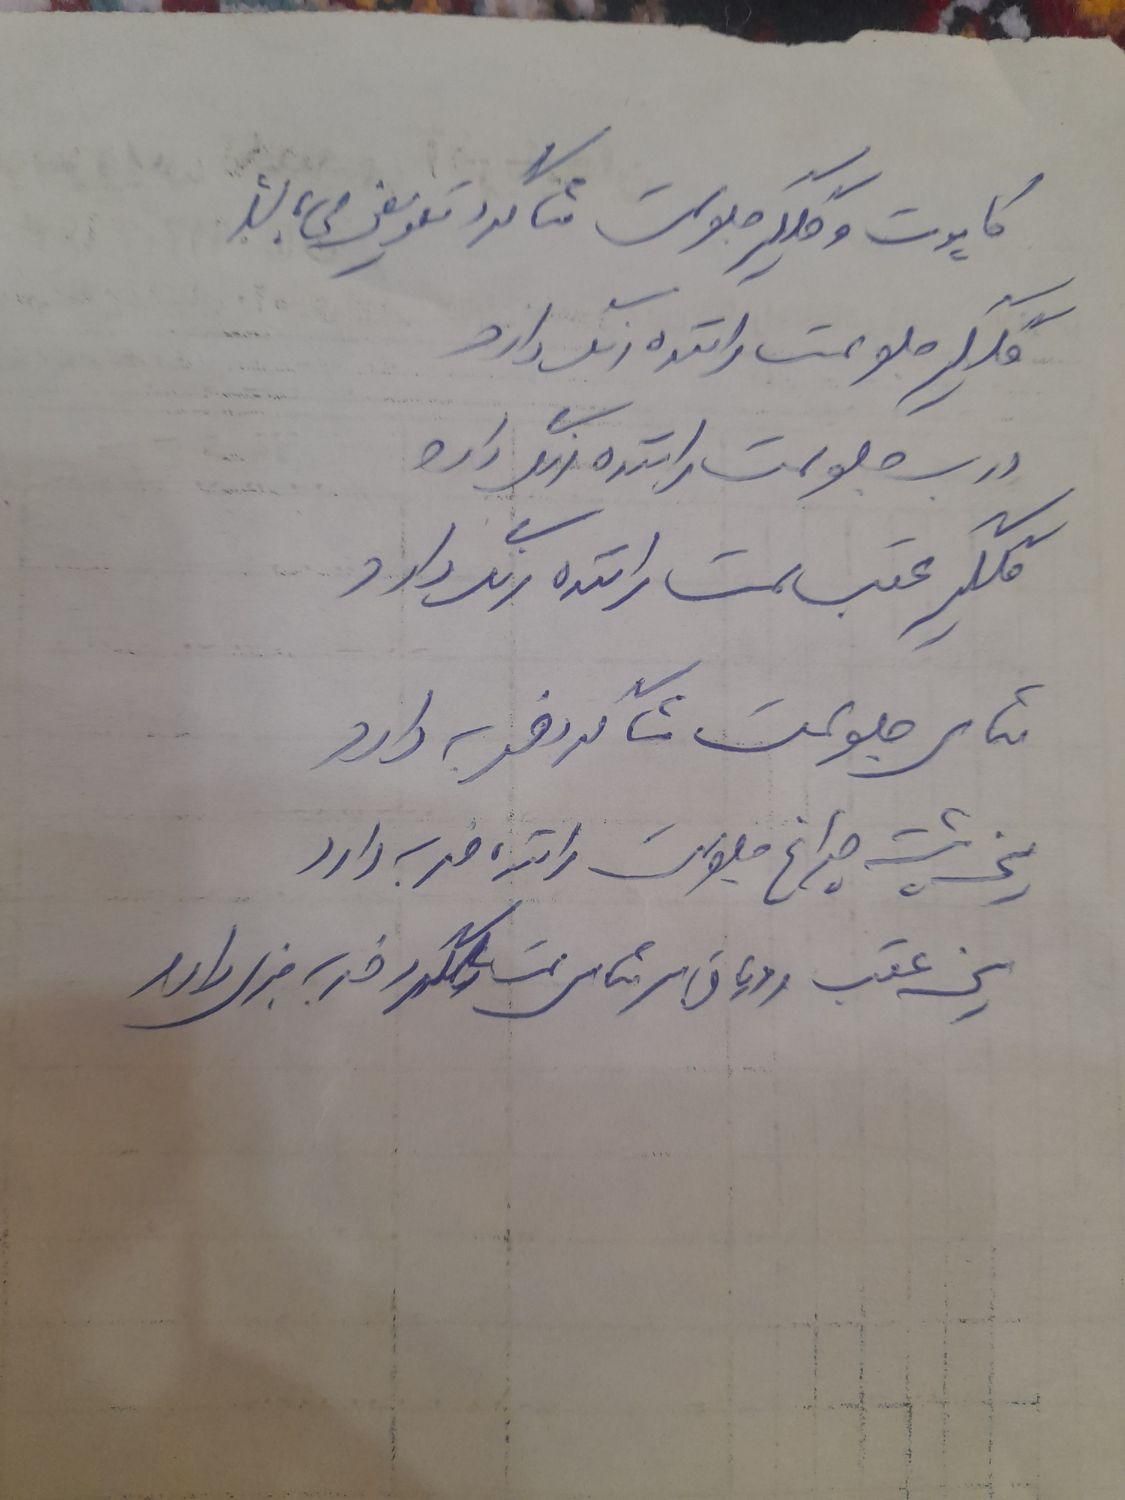 کاپوت و گلگیر جلو سمت شاگرد تعویض می باشد
گلگیر جلو سمت راننده رنگ دارد
درب جلو سمت راننده رنگ دارد
گلگیر عقب سمت راننده رنگ دارد
شاسی جلو سمت شاگرد ضربه دارد
سینی پشت چراغ جلو سمت راننده ضربه دارد
سینی عقب رودری سر شاسی سمت شاگرد ضربه جزئی دارد